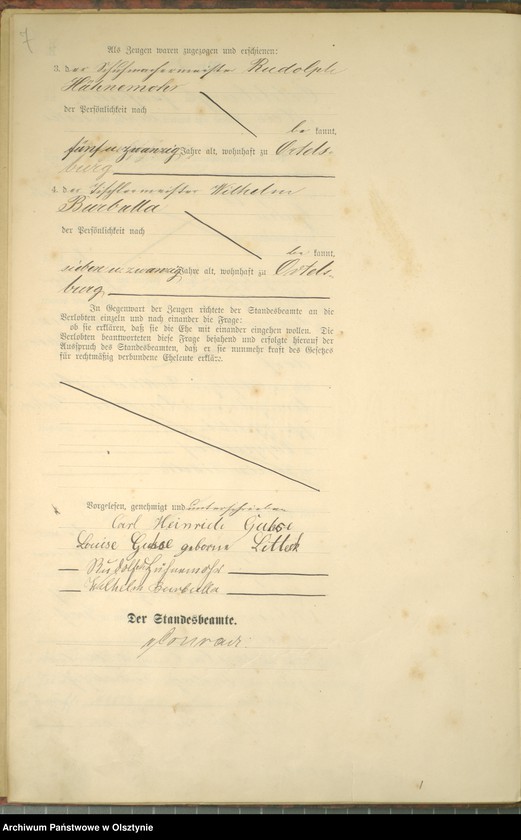 7
Als Zeugen waren zugezogen und erschienen:
3. der Schuhmachermeister Rudolph
Hühnemohr
der Persönlichkeit nach
be kannt,
fünf u zwanzig Jahre alt, wohnhaft zu Ortels-
burg
4. der Tischlermeister Wilhelm
Burballa
der Persönlichkeit nach
be kannt,
sieben u zwanzig Jahre alt, wohnhaft zu Ortels-
burg
In Gegenwart der Zeugen richtete der Standesbeamte an die
Verlobten einzeln und nach einander die Frage:
ob sie erklären, daß sie die Ehe mit einander eingehen wollen. Die
Verlobten beantworteten diese Frage bejahend und erfolgte hierauf der
Ausspruch des Standesbeamten, daß er sie nunmehr kraft des Gesetzes
für rechtmäßig verbundene Eheleute erkläre.
Vorgelesen, genehmigt und unterschrieben
Carl Heinrich
Louise geborne
Rudolph Hühnemohr
Wilhelm Burballa
Der Standesbeamte.
Archiwum Państwowe w Olsztynie